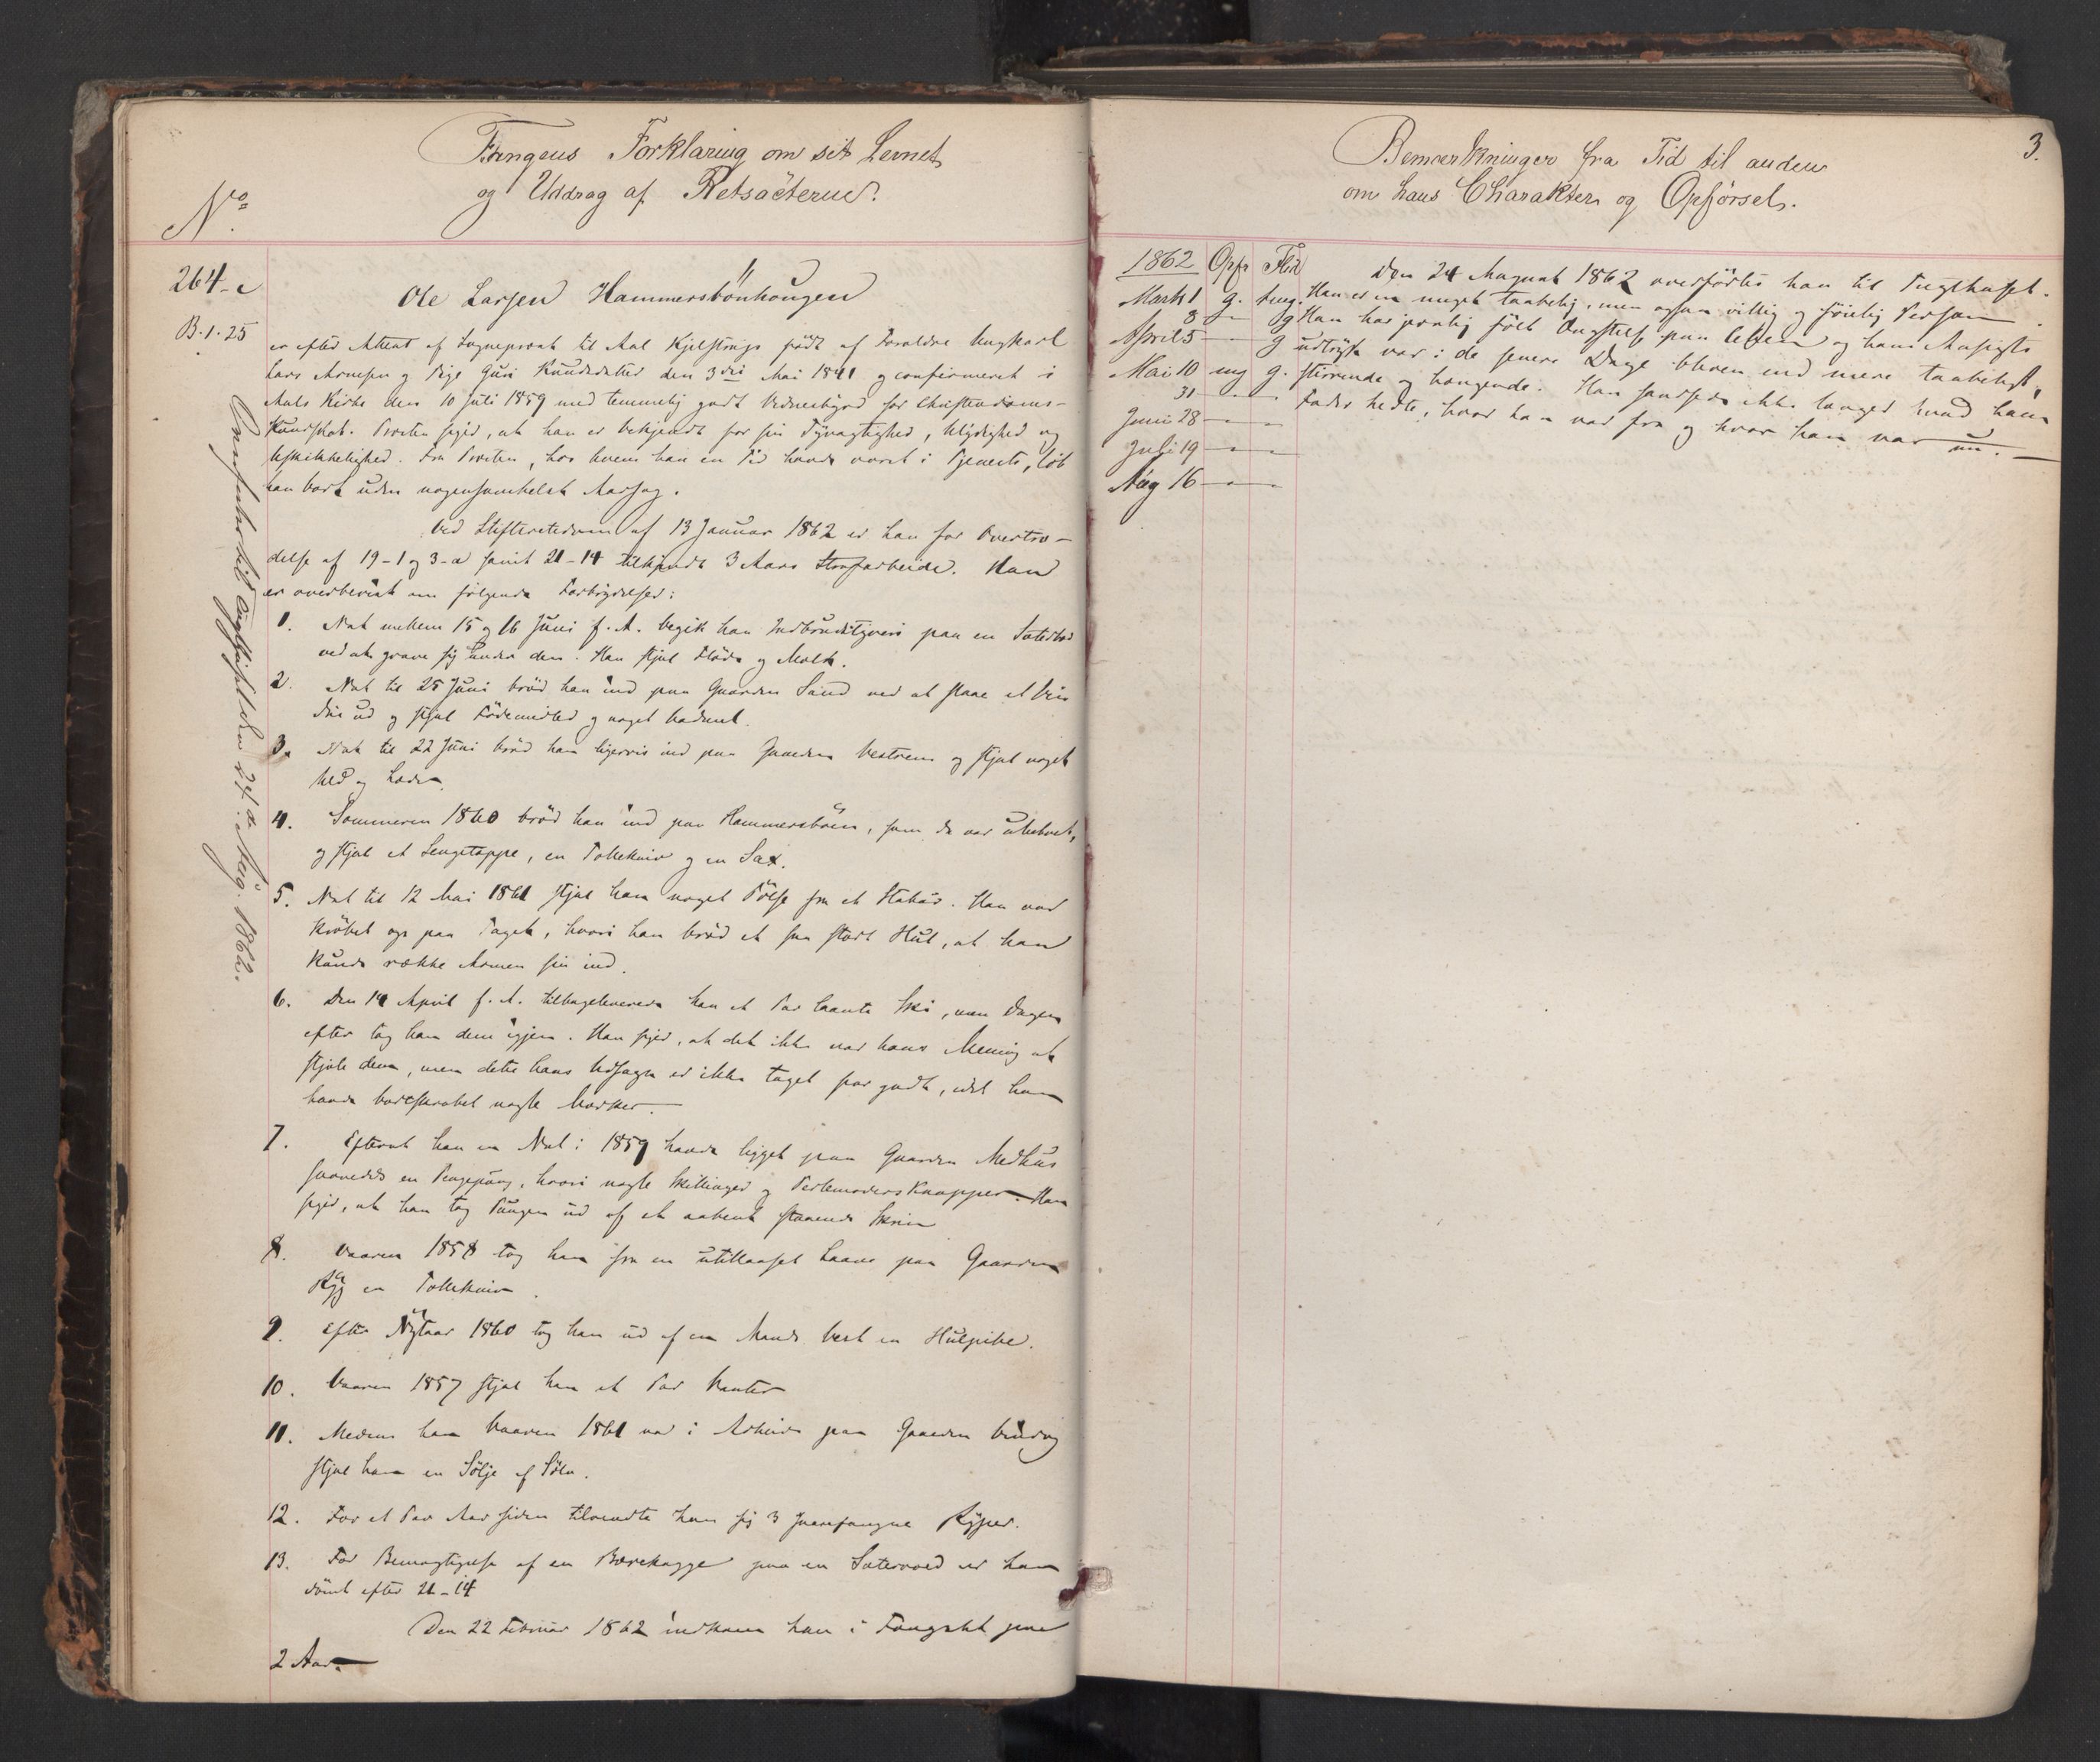 Fangens Forklaring om sit Levnet
og Uddrag af Retsacterne.
No.
264-c
B.1.25
Ole Larsen Hammersbönhougen
er efter Attest af Sognepræst til Aal Kjelstrup födt af Forældre Ungkarl
Lars Arnesen og Pige Guri Knudsdatter den 3die Mai 1841 og confirmeret i
Aals Kirke den 10 Juli 1859 med temmelig godt Vidnesbyrd for Christendoms-
kundskab. Præsten siger, at han er bekjendt for sin Tyvagtighed, Ulydighed og
Uskikkelighed. Fra Præsten, hos hvem han en Tid havde været i Tjeneste, löb
han bort uden nogensomhelst Aarsag.
Ved Stiftsretsdom af 13 Januar 1862 er han for Overtræ-
delse af 19-1 og 3-a samt 21-14 tilkjendt 3 Aars Strafarbeide. Han
er overbevist om fölgende Forbrydelser:
1. Nat mellem 15 og 16 Juni f. A. begik han Indbrudstyveri paa en Sæterbod
ved at grave sig under den. Han stjal Flöde og Melk.
2. Nat til 25 Juni bröd han ind paa Gaarden Sand ved at slaae et Vin
due ud og stjal Födemidler og noget Vadmel.
3. Nat til 22 Juni bröd han ligervis ind paa Gaarden Vestrem og stjal noget
Uld og Læder.
4. Sommeren 1860 bröd han ind paa Hammersböen, som da var ubeboet,
og stjal et Sengetæppe, en Tollekniv og en Sax.
5. Nat til 12 Mai 1861 stjal han noget Pölse fra et Stabur. Han var
kröbet op paa Taget, hvori han bröd et saa stort Hul, at han
kunde række Armen sin ind.
6. Den 14 April f. A. tilbageleverede han et Par laante Ski, men Dagen
efter tog han dem igjen. Han siger, at det ikke var hans Mening at
stjæle dem, men dette hans Udsagn er ikke taget for godt, idet han
havde bortskrabet nogle Mærker.
7. Efterat han en Nat i 1859 havde ligget paa Gaarden Medhus
savnedes en Pengepung, hvori nogle Skillinger og Perlemoders Knapper. Han
siger, at han tog Pungen ud af et aabent staaende Skrin
8. Vaaren 1858 tog han fra en utillaaset Laave paa Gaarden
en Tollekniv.
9. Efter Nytaar 1860 tog han ud af en Mands Vest en Hulpibe.
10. Vaaren 1857 stjal han et Par Vanter
11. Medens han Vaaren 1861 var i Arbeide paa Gaarden
stjal han en Sölje af Sölv.
12. For et Par Aar siden tilvendte han sig 3 snarefangne Ryper.
13. For Bemægtigelse af en Bærekagge paa en Sætervold er han
dömt efter 21-14
Den 22 Februar 1862 indkom han i Fængslet paa
2 Aar.
Overfört til Tugthuset den 24de Aug. 1862.
Bemærkninger fra Tid til anden
om hans Charakter og Opførsel.
3.
1862 Opf Flid
Marts 1 g. tmg.
8 — g
April 5 — g
Mai 10 mg g.
31 — —
Juni 28 — —
Juli 19 — —
Aug 16 — —
Den 24 August 1862 overförtes han til Tugthuset.
Han er en meget taabelig, men ogsaa villig og föielig Person.
Han har jevnlig fölt Ængstelse paa Cellen og hans Ansigts
udtryk var i de senere Dage bleven end mere taabeligt,
stirrende og hængende. Han sandsede ikke længer hvad hans
Fader hedte, hvor han var fra og hvor han var nu.